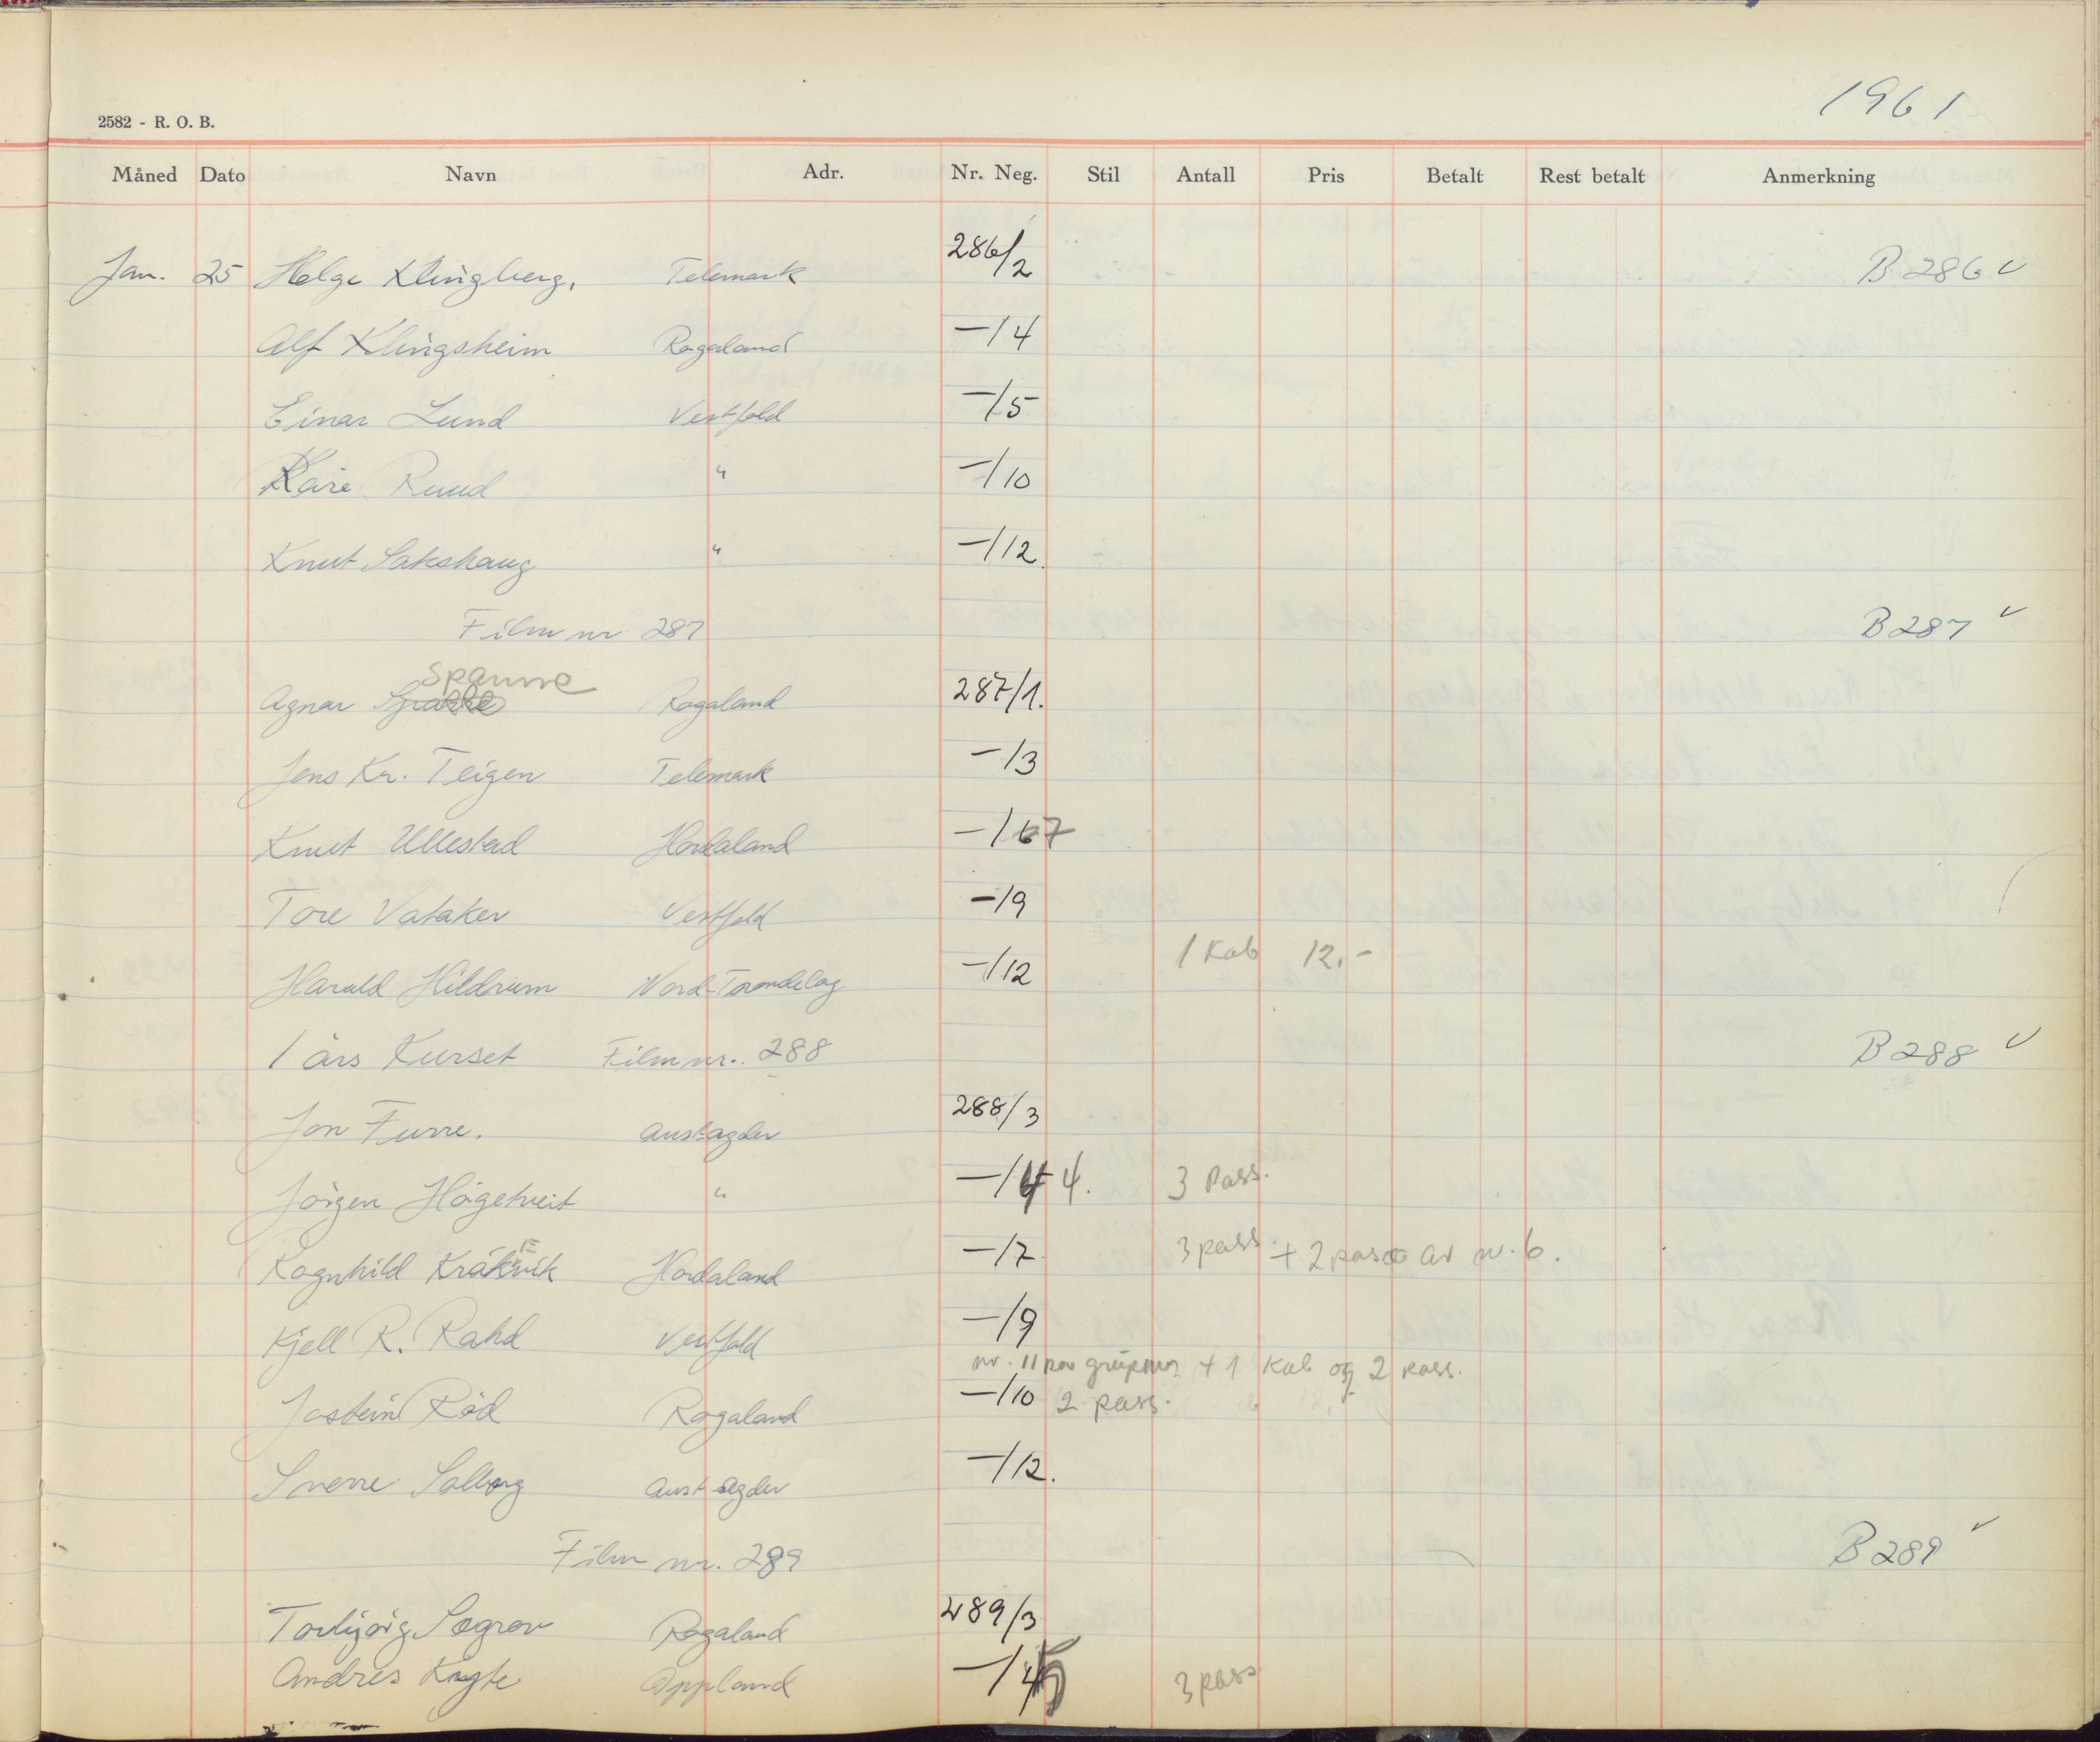 1961
2582 - R. O. B.
Måned Dato Navn Adr. Nr. Neg. Stil Antall Pris Betalt Rest betalt Anmerkning
Jan. 25 Helge Klingberg, Telemark 286/2 B 286 ✓
Alf Klingsheim Rogaland —/4
Einar Lund Vestfold —/5
Kåre Ruud " —/10
Knut Sakshaug " —/12.
Film nr 287 B 287 ✓
Spanne
Agnar Rogaland 287/1.
Jens Kr. Teigen Telemark —/3
Knut Ullestad Hordaland —/67
Tore Vataker Vestfold —/9
Harald Hildrum Nord-Trøndelag —/12 1 Kab 12.-
1 års Kurset Film nr. 288 B 288 ✓
Jon Furre. Aust-agder 288/3
Jörgen Högetveit " —/4 4. 3 Pass.
Ragnhild Kråkvik Hordaland —/7 3 pass + 2 pass av nr. 6.
Kjell R. Rahd Vestfold —/9
nr. 11 + 1 Kab og 2 pass.
Jostein Röd Rogaland —/10 2 pass.
Sverre Solberg Aust-agder —/12.
Film nr. 289 B 289 ✓
Torbjörg Sogrov Rogaland 289/3
Andres Oppland —/45 3 pass